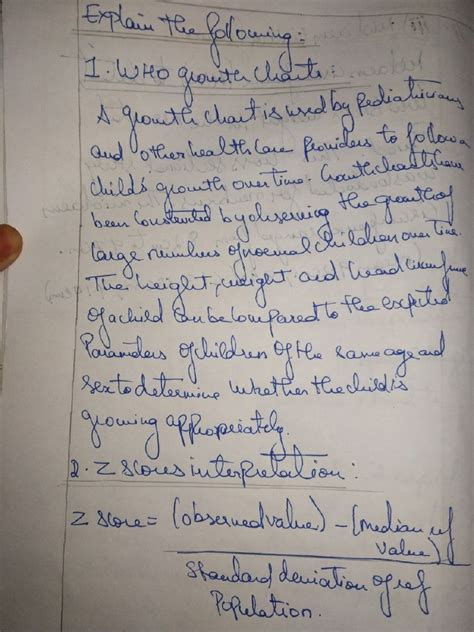 Explain the following:
1. WHO growth charts:
A growth chart is used by pediatricians
and other health care providers to follow a
child's growth over time. Growth charts have
been constructed by observing the growth of
large numbers of normal children over time.
The height, weight, and head circumference
of a child can be compared to the expected
Parameters of children of the same age and
sex to determine whether the child is
growing appropriately.
2. Z scores interpretation:
Z score = (observed value) - (median ref
value)
Standard deviation of ref
Population.